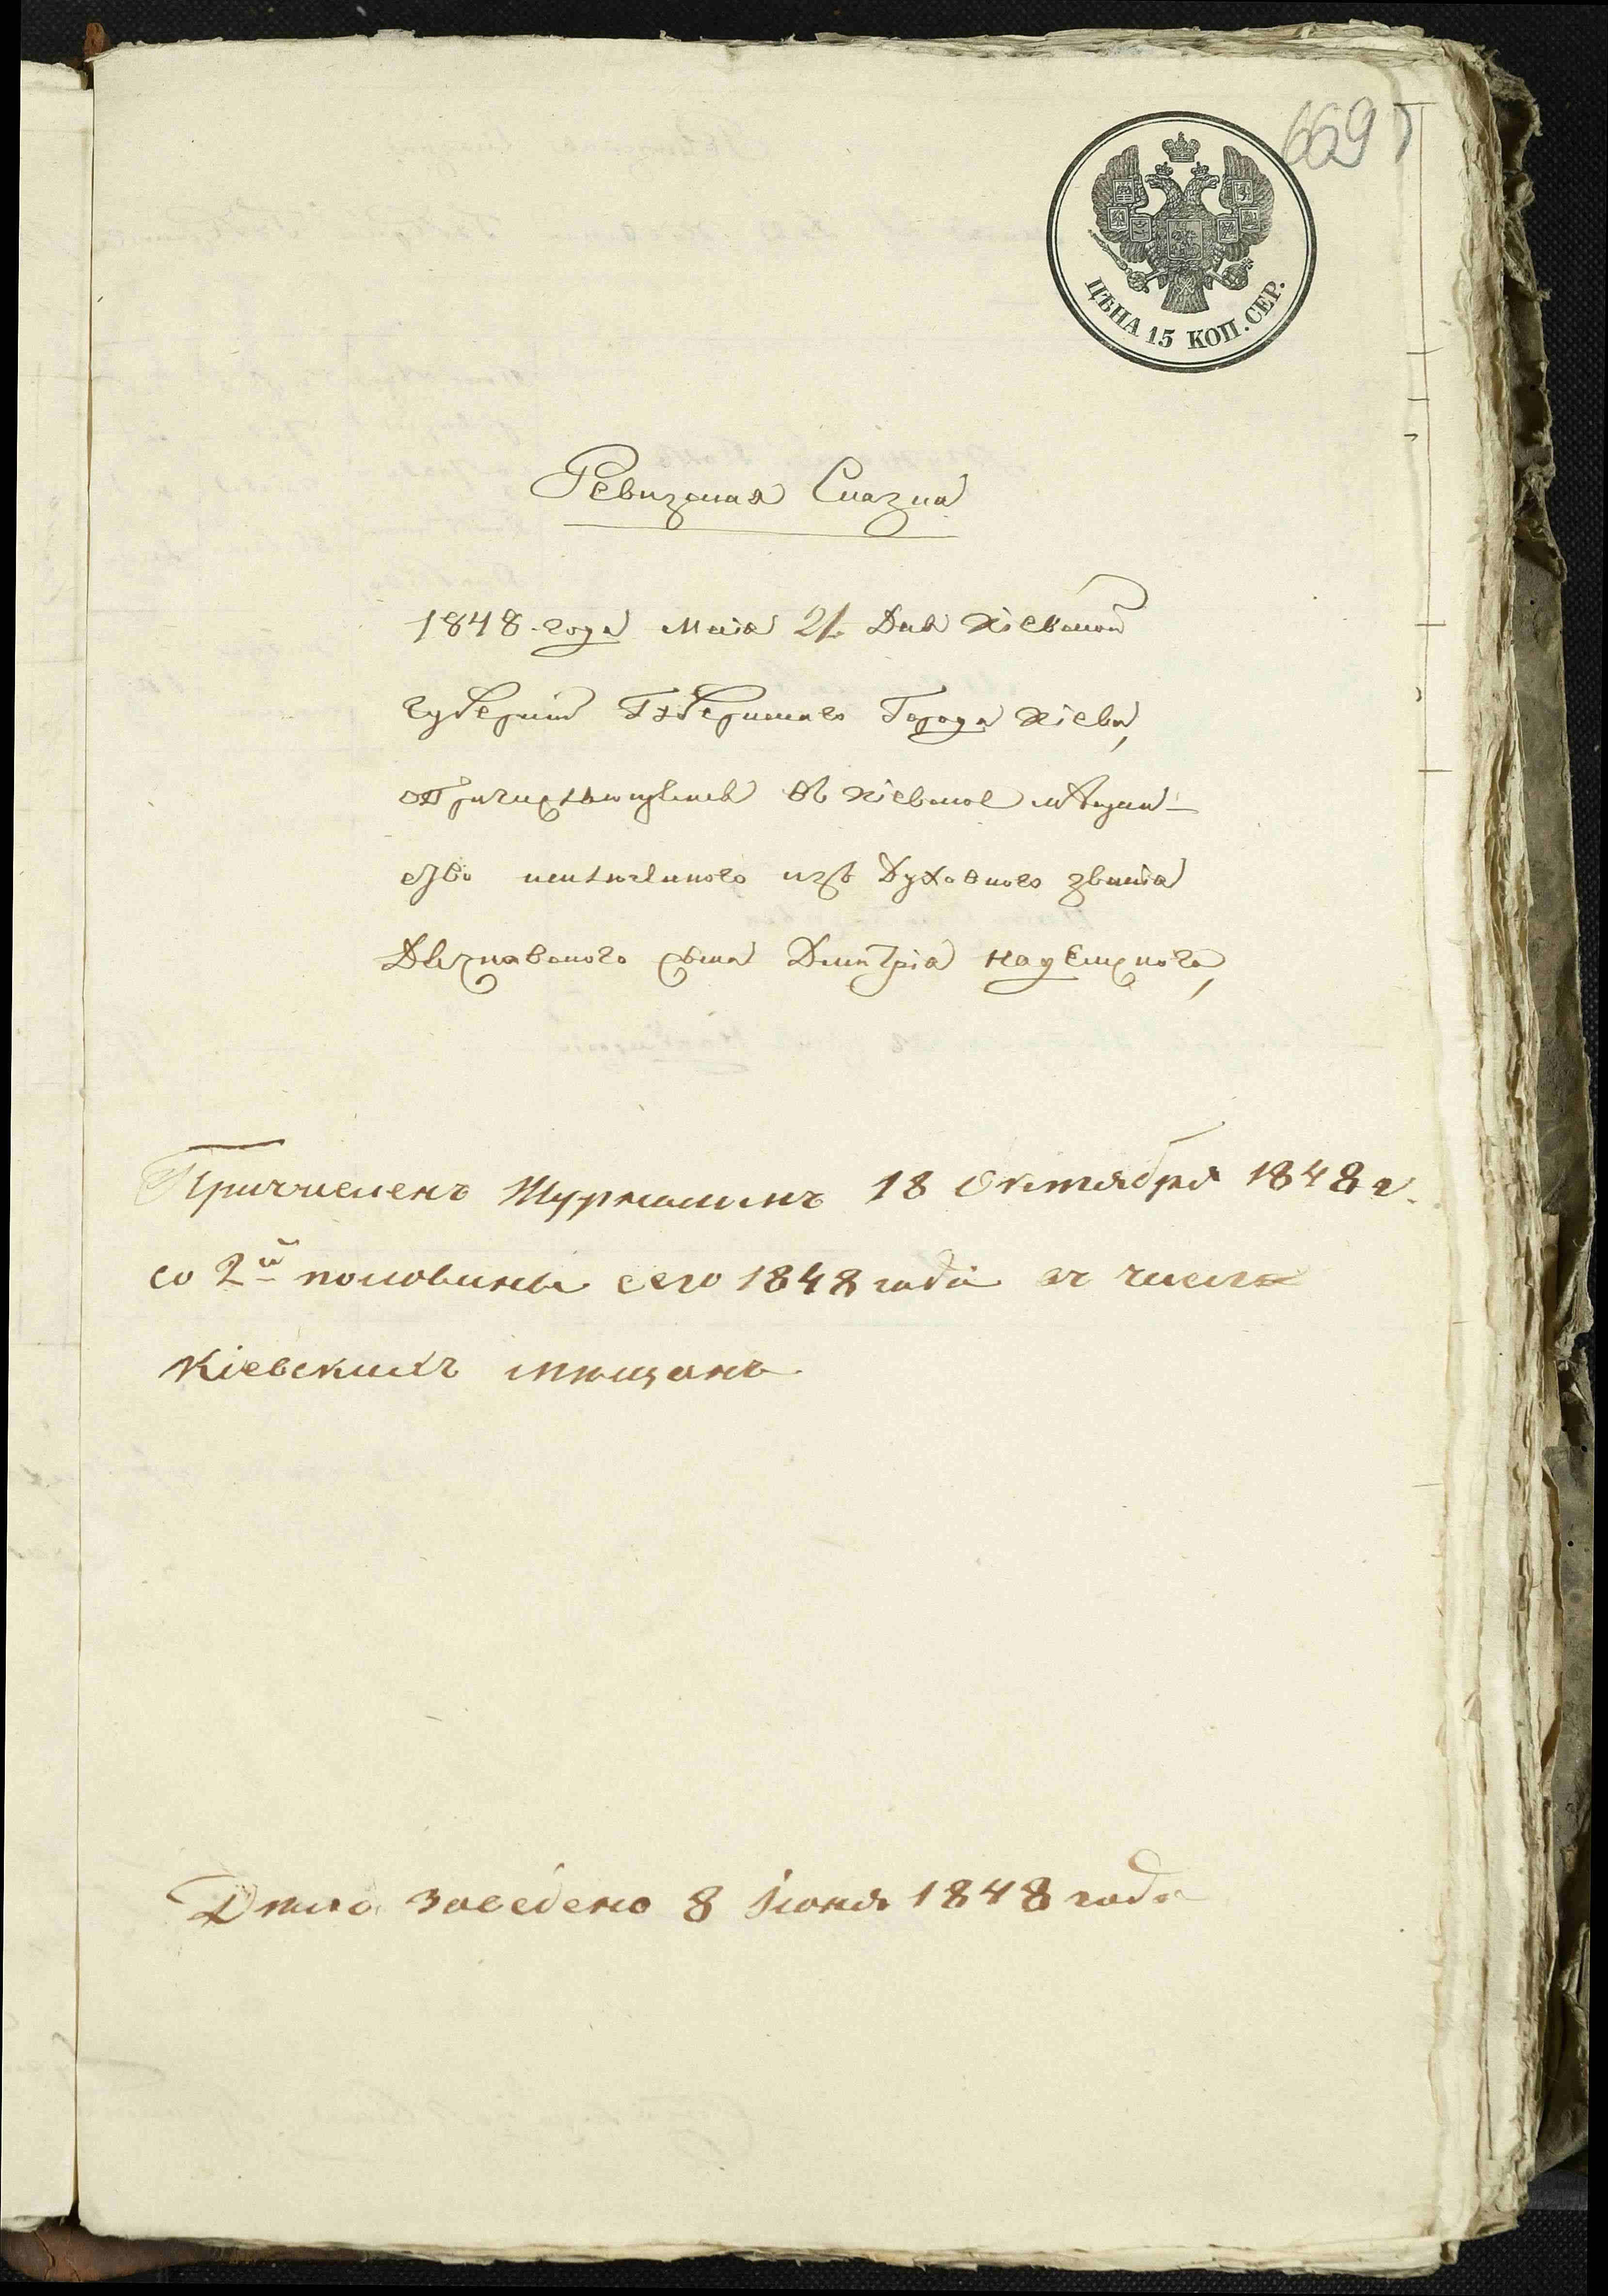 669
ЦѢНА 15 КОП. СЕР.
Ревизская Сказка
1848 года Маія 21 Дня Кіевской
губерніи Губернскаго Города Кіева,
о Причисляющемся въ Кіевское мѣщан-
ство исключеннаго изъ Духовного званія
Дьячковскаго сына Дмитрія
Причисленъ Журналомъ 18 Октября 1848 г.
со 2й половины сего 1848 года въ число
Кіевскихъ мѣщанъ.
Дѣло заведено 8 Іюня 1848 года